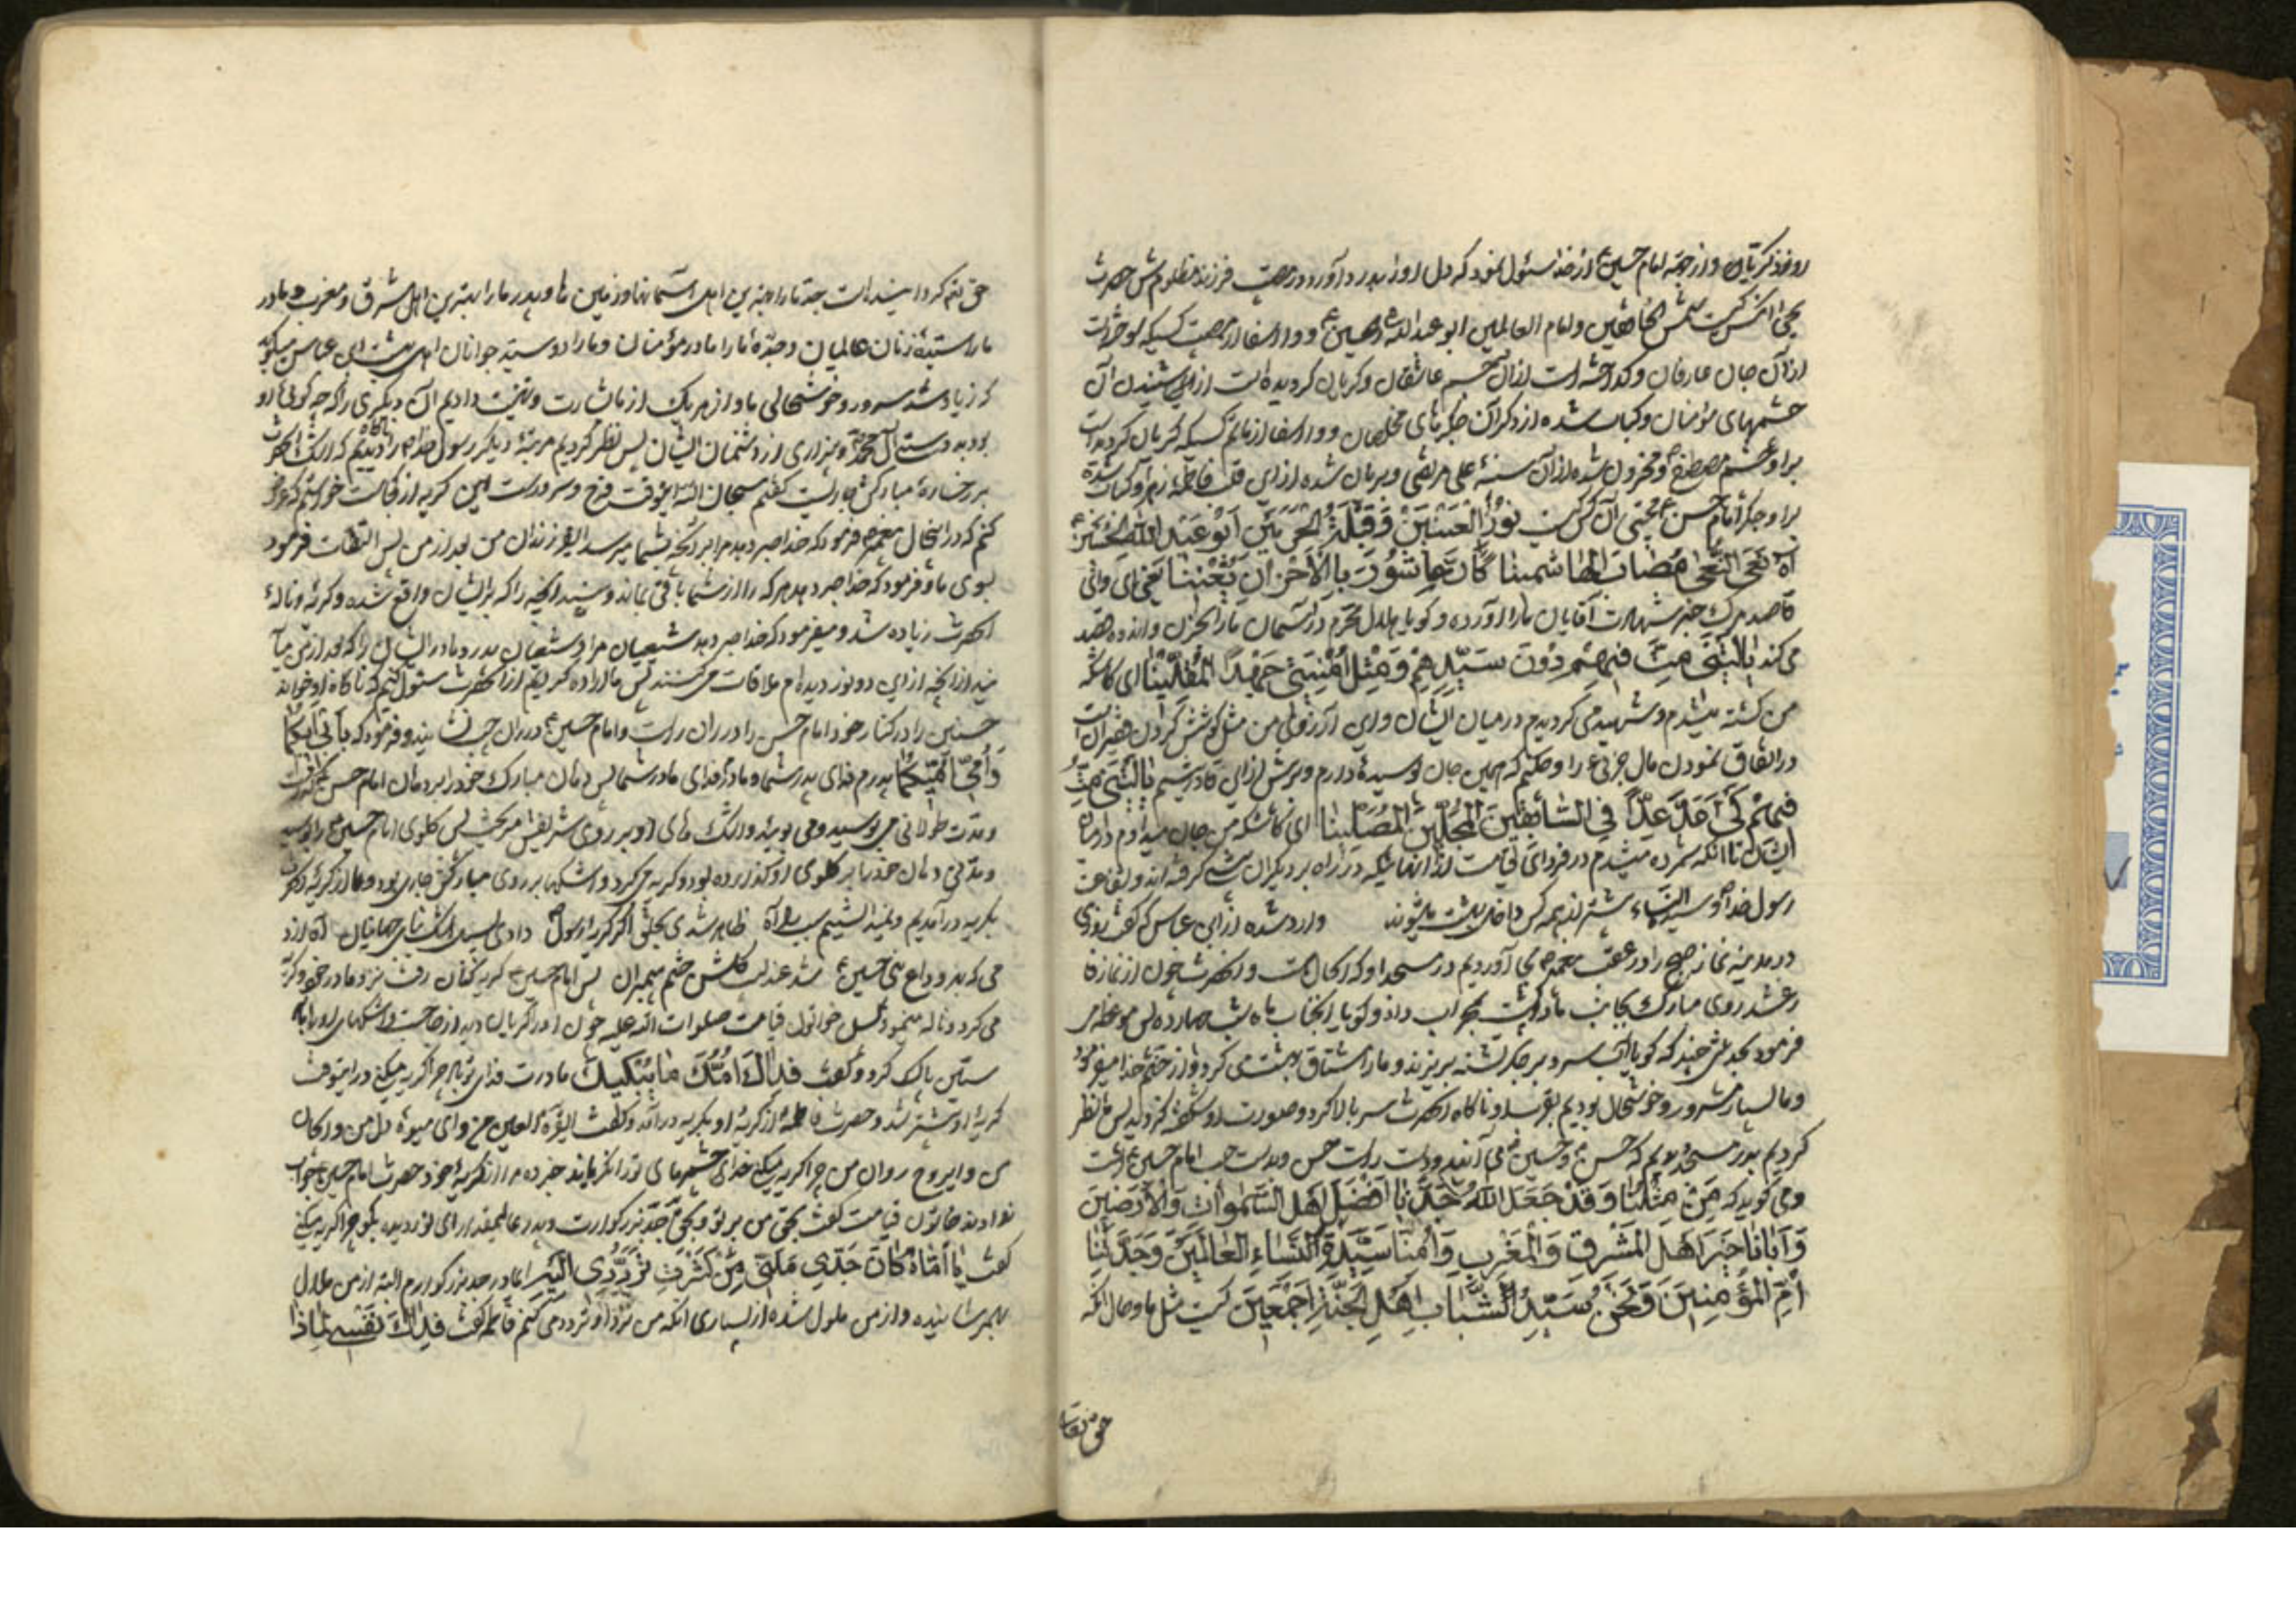 روز ذکریا و از جهه امام حسین ع از خدا سئول نمود که دل او را بدرد آورد در مصیبت فرزند مظلومش حضرت
یحیی آنکس کیست شمس الخافقین و امام العالمین ابو عبد الله الحسین ع و وا اسفا از مصیبت کسیکه سوخته است
از آن جان عارفان و کداخته است از آن جسم عاشقان و کریان کردیده است از شنیدن آن
چشمهای مؤمنان و کباب شده از ذکر آن جکرهای مخلصان و وا اسفا از ماتم کسیکه کریان کردیده است
بر او چشم مصطفی ص و محزون شده از آن سینهٔ علی مرتضی و بریان شده از این قلب فاطمه زهرا و کباب شده
بر او جکر امام حسن ع مجتبی آن کس کیست نور العینین و قبلة الحرمین ابو عبد الله الحسین ع
آه نعی النعی مصاب الهاشمینا کان عاشور بالاحزان یعنینا یعنی ای وای
قاصد مرک خبر شهادت آقایان ما را آورده و کویا هلال محرم در آسمان ما را بحزن و اندوه قصد
می کند یا لیتنی مت فیهم دون سیدهم و مثل امنیتی جهد المقلینا ای کاشکه
من کشته میشدم و شهید می کردیدم در میان ایشان و این آرزوی من مثل کوشش کردن فقیر است
در انفاق نمودن مال جزئی را و حکنم که همین جان بوسیده دارم و برش از این قادر نیستم یا لیتنی مت
فیهم کی اعد غدا فی السابقین المجلین المصلینا ای کاشکه من جان میدادم در میان
ایشان تا آنکه شمرده میشدم در فردای قیامت از آنهائیکه در راه بر دیکران پیشی کرفته اند و بشفاعت
رسول خدا ص و سیدة النساء پیشتر از همه کس داخل بهشت میشوند وارد شده از ابن عباس که کفت روزی
در مدینه نماز صبح را در عقب پیغمبر ص بجا آوردیم در مسجد او که الحال هست و آنحضرت چون از نماز فا
رغ شد روی مبارک بجانب ما و پشت بمحراب داد و کویا آنجناب ماه شب چهارده پس موعظه
فرمود بحدیثی چند که کویا آب سرد بر جکر تشنه بریزند و ما را مشتاق بهشت می کرد و از خشم خدا میفرمود
و ما بسیار مسرور و خوشحال بودیم بقرب او ناکاه آنحضرت سر بالا کرد و صورت او شکفته کردید پس نظر
کردیم بدر مسجد دیدیم که حسن ع و حسین ع می آیند و دست راست حسن بدست چپ امام حسین ع است
و می کویند که من مثلنا و قد جعل الله جدنا افضل اهل السموات و الارضین
و ابانا خیر اهل المشرق و المغرب و امنا سیدة النساء العالمین و جدتنا
ام المؤمنین و نحن سید الشباب اهل الجنة اجمعین کیست مثل ما و حال آنکه
حق تعا
حق تعا کردانیده است جد ما را بهترین اهل آسمانها و زمین ها و پدر ما را بهترین اهل مشرق و مغرب و مادر
ما را سیدهٔ زنان عالمیان و جدهٔ ما را مادر مؤمنان و ما را دو سید جوانان اهل بهشت ابن عباس میکوید
که زیاد شد سرور و خوشحالی ما و از هر یک از ما بشارت و تهنیت دادیم آن دیکری را که چه کوئی او
بود بدوستی آل محمد ص و بیزاری از دشمنان ایشان پس نظر کردیم مرتبهٔ دیکر رسول خدا ص را ناکاه دیدیم که اشک آنحضرت
بر رخسارهٔ مبارکش جاریست کفتم سبحان الله اینوقت فرح و سرور است این کریه از کجاست خواستم که عرض
کنم که در اینحال پیغمبر ص فرمود که خدا صبر دهد مرا بر آنچه بشما میرسد ای فرزندان من بعد از من پس التفات فرمود
بسوی ما و فرمود که خدا صبر دهد هر که را از شما باقی بماند و ببیند آنچه را که بر ایشان واقع شده و کریه و نالهٔ
آنحضرت زیاده شد و میفرمود که خدا صبر دهد شیعیان مرا و شیعیان پدر و مادر ایشان را که بعد از من
از آنچه از این دو نور دیده ام ملاقات می کنند پس ما اراده کردیم از آنحضرت سئول کنیم که ناکاه او خواند
حسنین را در کنار خود امام حسن را در ران راست و امام حسین ع در ران چپ نشانید و فرمود که بابی ابکما
و امی امکما پدرم فدای پدر شما و مادرم فدای مادر شما پس دهان مبارک خود را بر دهان امام حسن کذاشت
و مدت طولانی می بوسید و می بوئید و اشک های او بر روی شریفش میریخت پس کلوی امام حسین ع را بوسید
و مدتی دهان خود را بر کلوی او کذارده بود و کریه می کرد و اشکها بر روی مبارکش جاری بود و ما از کریهٔ آنحضرت
بکریه در آمدیم و نمیدانستیم سبب را آه ظاهر شدی بخلق اکر کریهٔ رسول دادی بسیل اشک بنای جهانیان آه از د
می که بد وداع نبی حسین ع شد عندلیب کلشن چشم پیمبران پس امام حسین ع کریه کنان رفت نزد مادر خود و کریه
می کرد و ناله مینمود پس خواتون قیامت صلوات الله علیه چون او را کریان دید از جا جست و اشکهای او را به
آستین پاک کرد و کفت فداک امک ما یبکیک مادرت فدای تو باد چرا کریه میکنی در اینوقت
کریهٔ او بیشتر شد و حضرت فاطمه از کریهٔ او بکریه در آمد و کفت ای قرة العین من و ای میوهٔ دل من و ای جان
من و ای روح روان من چرا کریه میکنی خدای چشمهای تو را نکریاند خبر ده مرا از کریهٔ خود حضرت امام حسین ع جواب
نداد پس خاتون قیامت کفت بحق من بر تو و بحق جد بزرکوارت و پدر عالیمقدارت ای نور دیده بکو چرا کریه میکنی
کفت یا اماه کان جدی ملنی من کثرت ترددی الیه ای مادر جد بزرکوارم البته از من ملال
بهم رسانیده و از من ملول شده از بسیاری آنکه من نزد او تردد می کنم فاطمه کفت فداک نفسی لماذا